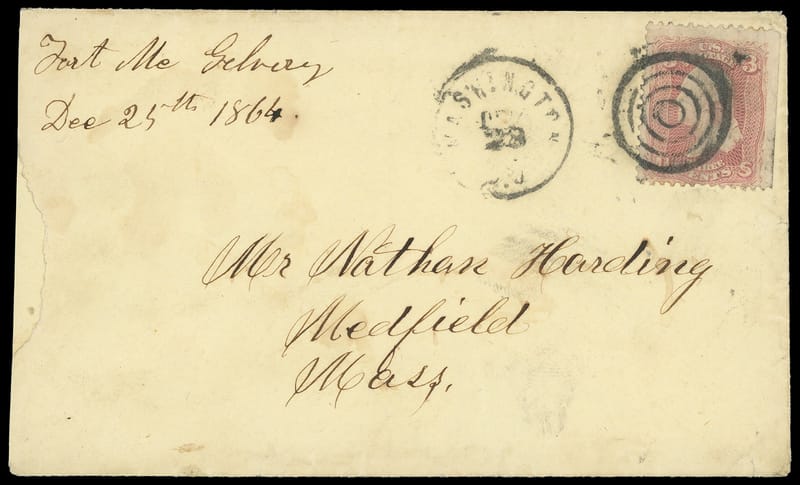 Fort Mc Gilvery
Dec 25th 1864.
WASHINGTON
DEC
28
D.C.
U.S.
3
CENTS
Mr Nathan Harding
Medfield
Mass.